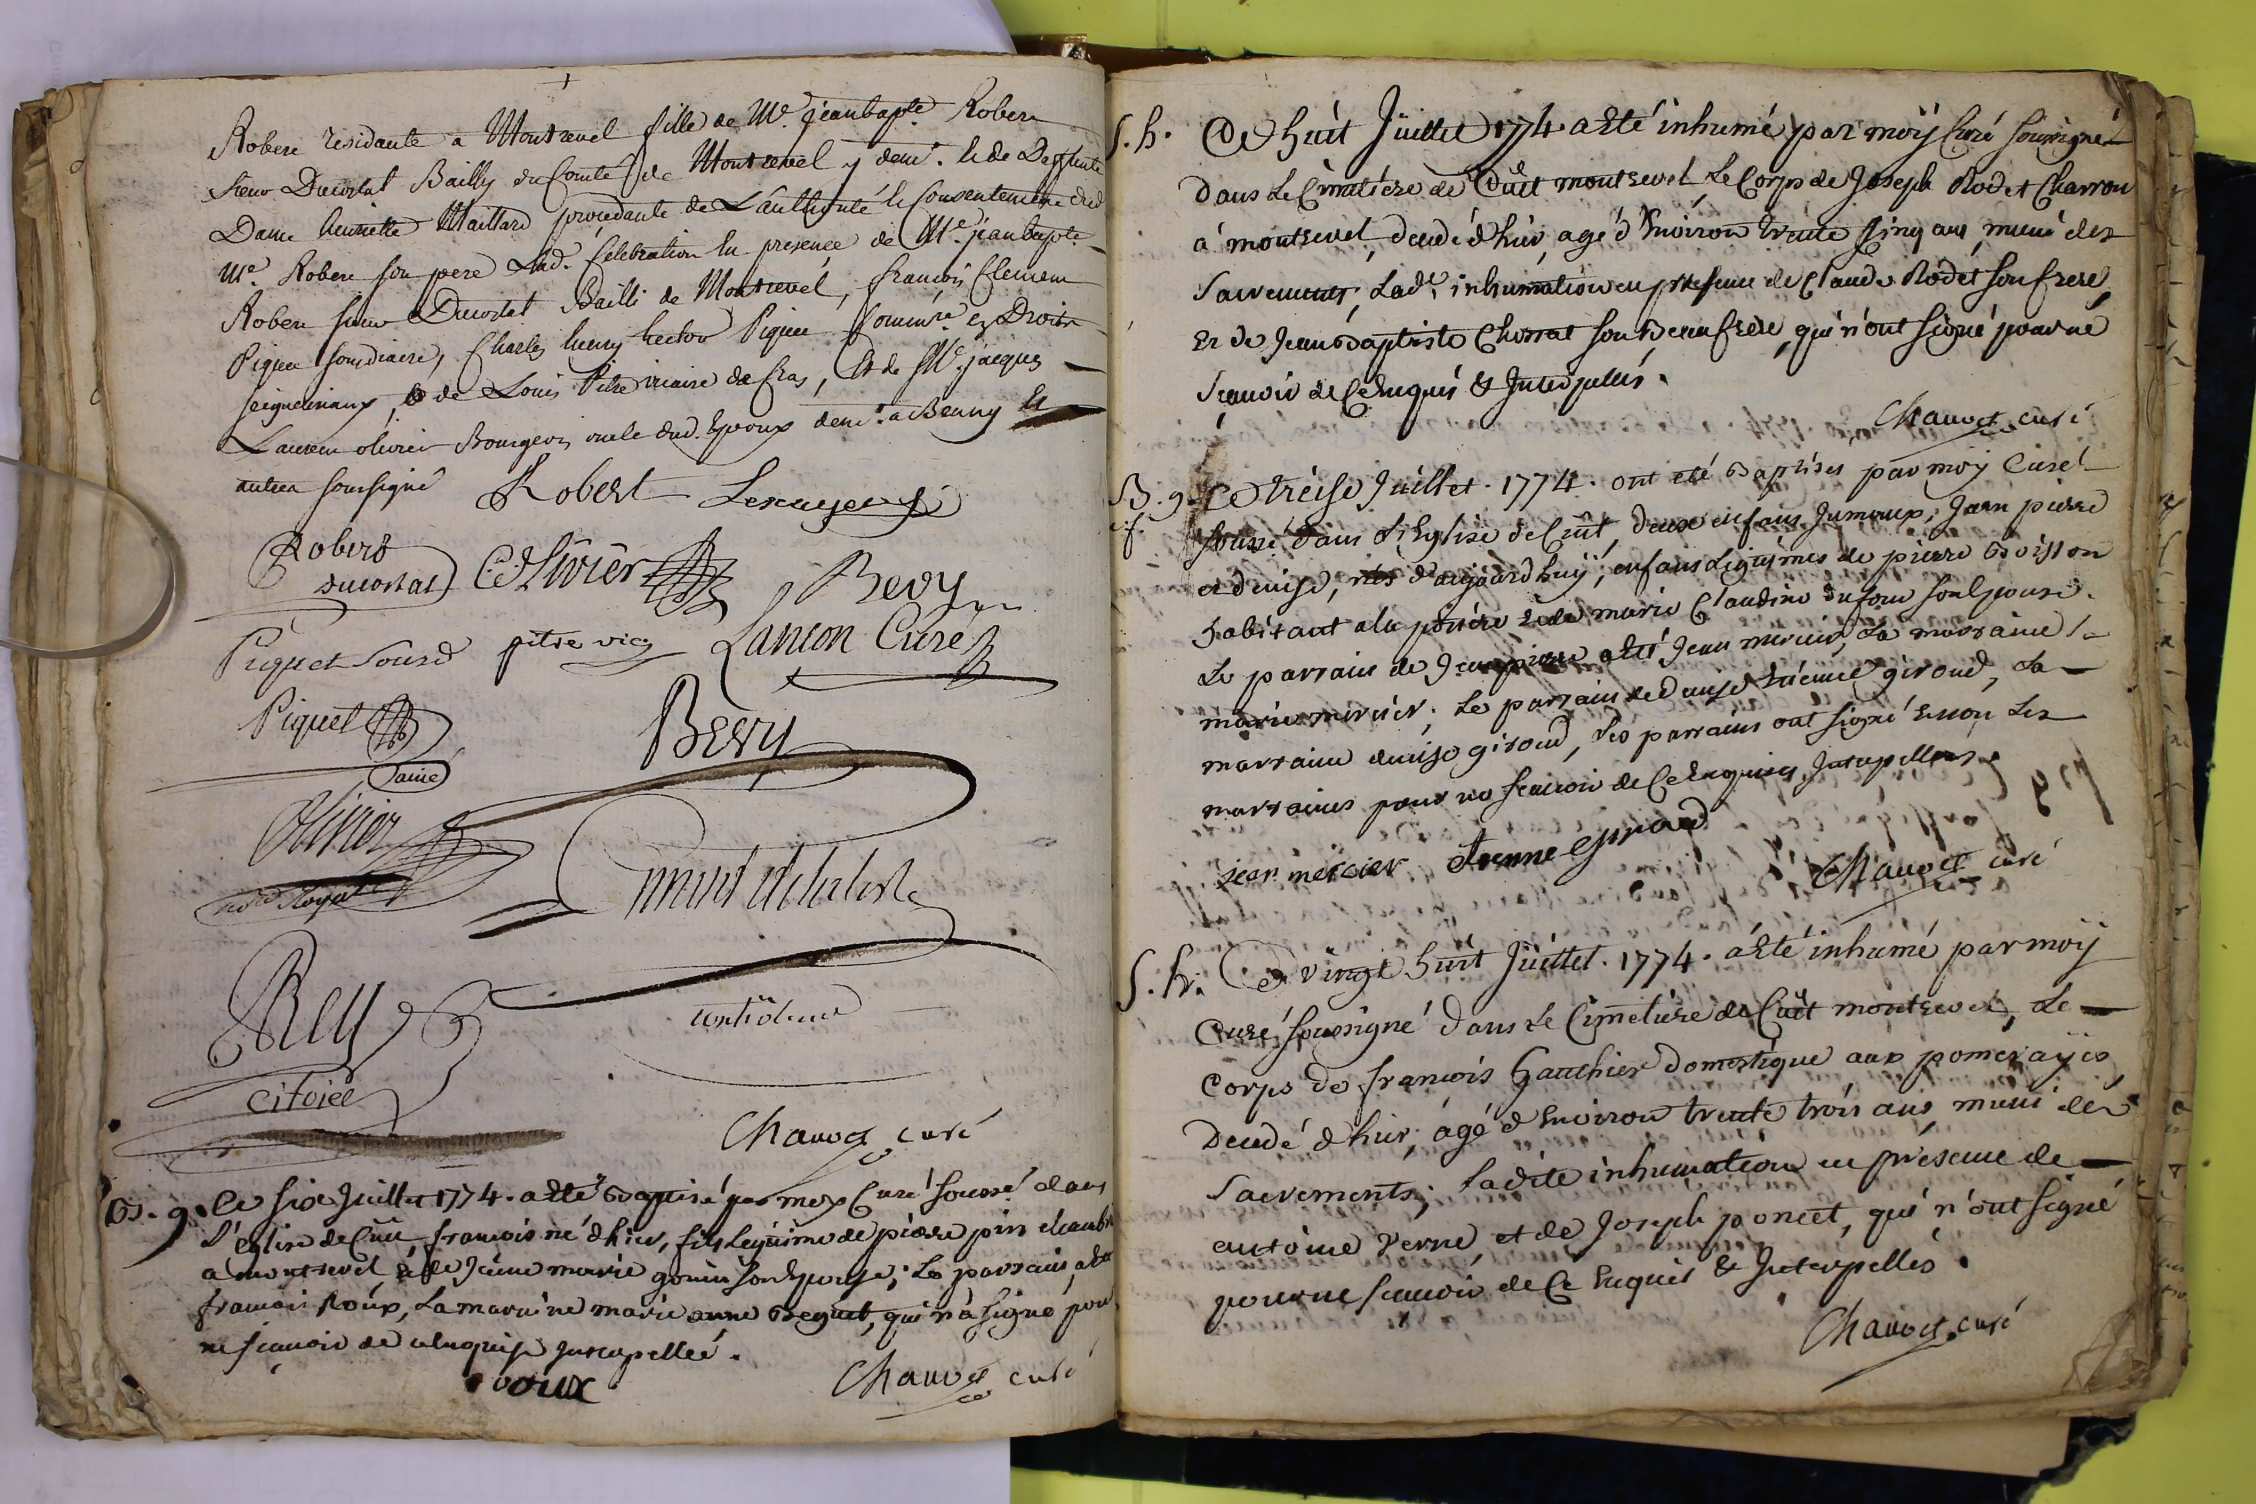 Robert residante a Montrevel fille de Me. jeanbapte. Robert
Sieur Ducostal Bailly du Comté de Montrevel y demt. & de Deffunte
Dame henriette Maillard procedante de Lauthorité & Consentement dud
Me. Robert son pere Lad. Celebration en presence de Me. jeanbapte
Robert sieur Ducostal Bailli de Montrevel, francois Clement
Piquet soudiacre, Charles henry hector Piquet
seigneuriaux, & de Louis Pitre vicaire de Cras, Et de Me. jacques
Laurent olivier Bourgeois oncle dud. Epoux demt. a Beuny &
autres soussigné
Robert
Robert
ducostal
Olivier
Bevy
Piquet Sousd
pitre vic
Lancon Curé
Piquet
l'ainé
Bevy
Olivier
nore Royal
Rey
citoien
Chauvet curé
B. g. Ce six Juillet 1774. a eté Baptisé par moy Curé sousné dans
l'eglise de Cuët, francois né d'hier, fils Legitime de pierre pin
a montrevel & de Jeanne marie gonin son Epouse; Le parrain, a eté
francois Roux, La maraine marie anne Beguet, qui n'a signé pour
ne scavoir de ce Enquise Interpellée.
roux
Chauvet curé
S. h. Ce huit Juillet 1774 a Eté inhumé par moÿ Curé soussigné
dans Le Cimetière de Cuët montrevel Le Corps de Joseph Rodet Charron
a montrevel, decedé d'hier, agé d'Environ trente cinq ans, muni des
Sacrements, Lade. inhumation en presence de Claude Rodet son frere,
Et de Jean Baptiste Chossat son Beaufrère, qui n'ont signé pour ne
scavoir de Ce Enquis & Interpellés.
Chauvet curé
B. g. Ce treise Juillet. 1774. ont eté Baptisés par moy Curé
sousné dans L'Eglise de Cuët, deux enfans Jumeaux, Jean pierre
et denise, nés d'aujourd'huy, enfans Legitimes de pierre Boisson
habitant a la & de marie Claudine dufour son Epouse.
Le parrain de Jeanpierre a eté Jean mercier, La marraine
marie mercier; Le parrain de denise Etienne giroud, La
marraine denise giroud, Les parrains ont signé & non Les
marraines pour ne scavoir de Ce Enquises Interpellées.
jean mercier
Etienne giroud
Chauvet curé
S. h. Ce vingt huit Juillet. 1774. a Eté inhumé par moÿ
Curé soussigné dans Le Cimetière de Cuët montrevel, Le
Corps de francois Gauthier domestique aux pomeraÿes
Decedé d'hier, agé d'Environ trente trois ans, muni des
Sacrements; Ladite inhumation en presence de
antoine Verne, et de Joseph poncet, qui n'ont signé
pour ne scavoir de Ce Enquis & Interpellés.
Chauvet curé